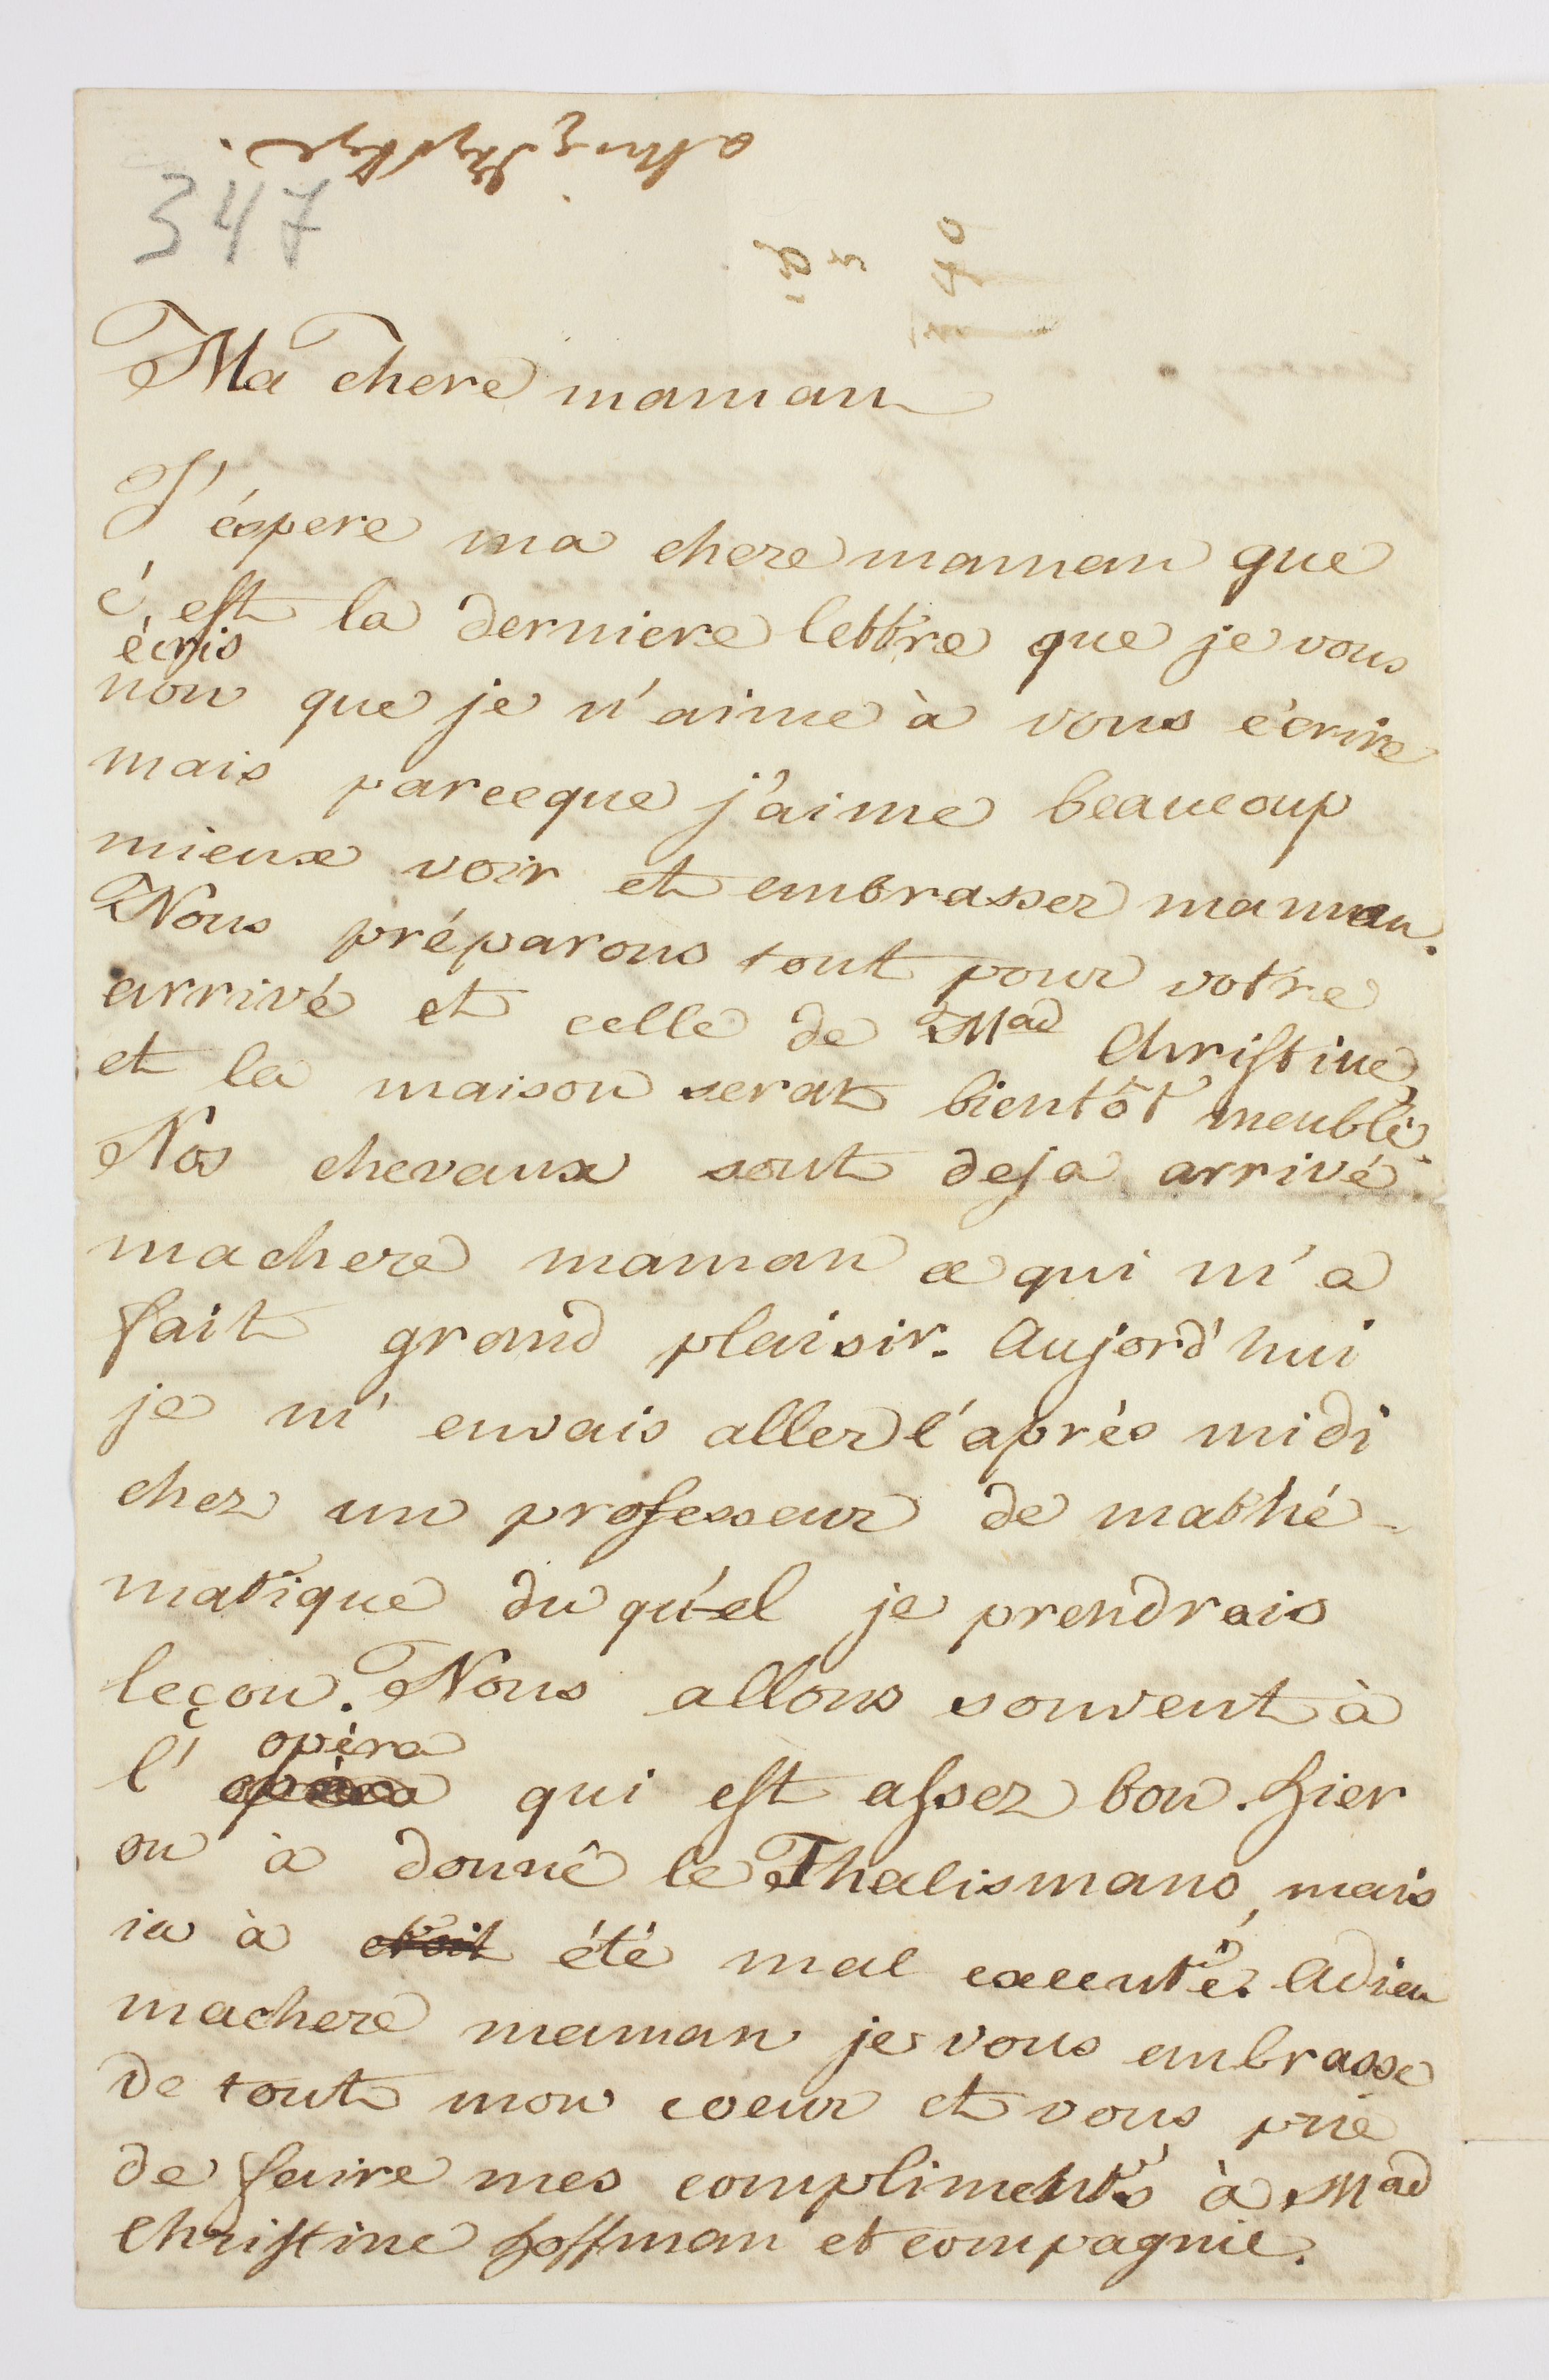 347
Ma chere maman
J'éspere ma chere maman que
c'est la derniere lettre que je vous
écris
non que je n'aime à vous écrire
mais parceque j'aime beaucoup
mieux voir et embrasser maman.
Nous préparons tout pour votre
arrivé et celle de Mad Christine,
et la maison serat bientôt meublé.
Nos chevaux sont deja arrivé
machere maman ce qui m'a
fait grand plaisir. Aujord'hui
je m'envais aller l'aprés midi
chez un professeur de mathé-
matique du qu'el je prendrais
leçon. Nous allons souvent à
opéra
l' qui est assez bon. Hier
on à donné le Thalismano, mais
ia à etoit été mal executé. Adieu
machere maman je vous embrasse
de tout mon coeur et vous prie
de faire mes compliments à Mad
Christine Hoffman et compagnie.